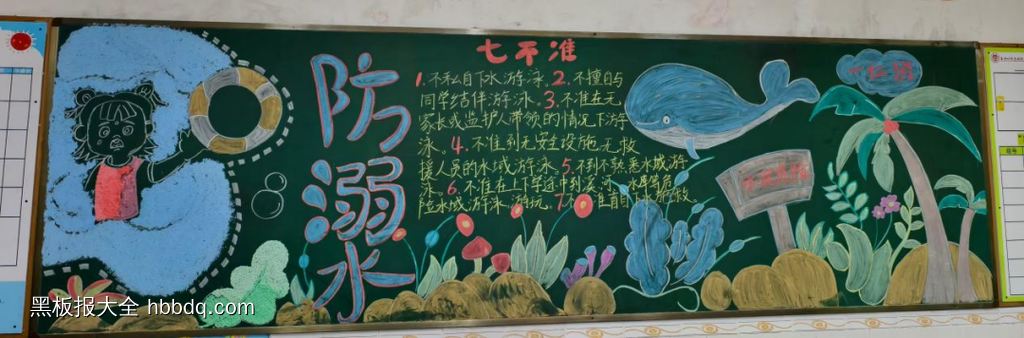 七不准
防溺水
1.不私自下水游泳.2.不擅自与
同学结伴游泳.3.不准在无
家长或监护人带领的情况下游
泳.4.不准到无安全设施无救
援人员的水域游泳.5.不到不熟悉水域游
泳.6.不准在上下学途中到
险水域游泳、游玩.7.不准盲目下水施救
黑板报大全 hbbdq.com